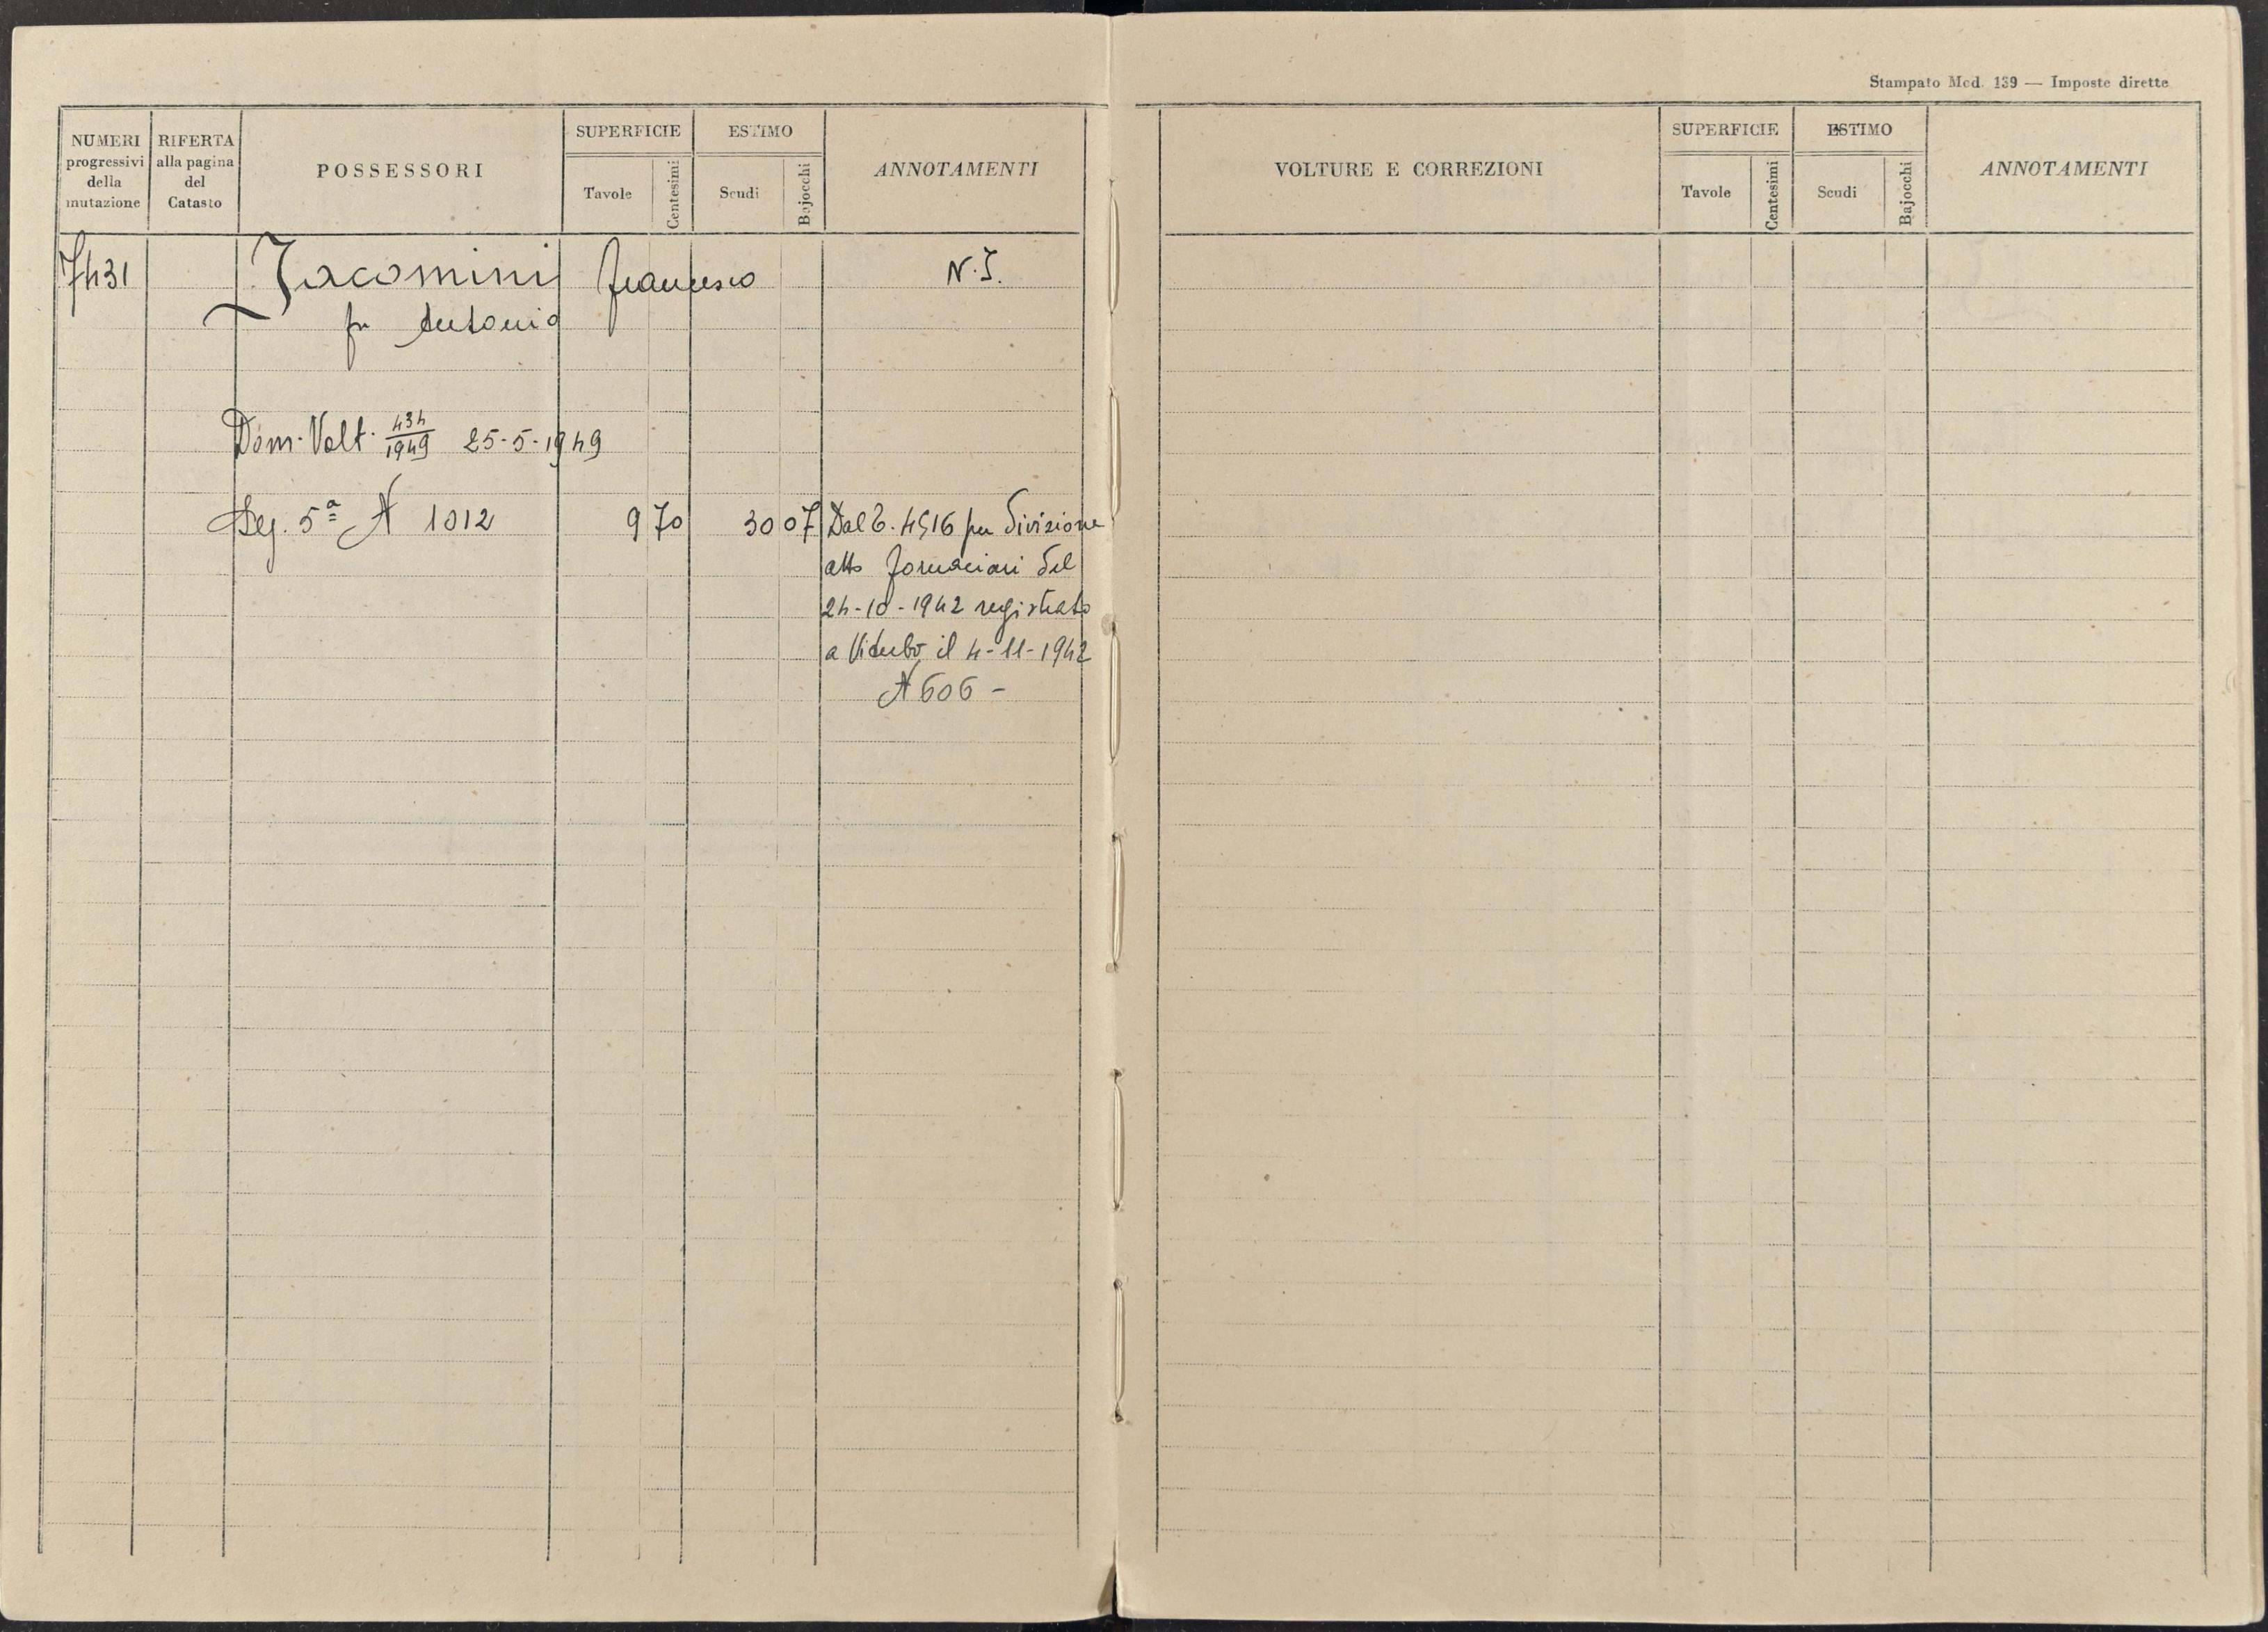 Stampato Mod. 139 — Imposte dirette
NUMERI progressivi della mutazione
RIFERTA alla pagina del Catasto
POSSESSORI
SUPERFICIE
Tavole
Centesimi
ESTIMO
Scudi
Bajocchi
ANNOTAMENTI
VOLTURE E CORREZIONI
SUPERFICIE
Tavole
Centesimi
ESTIMO
Scudi
Bajocchi
ANNOTAMENTI
7431 Jacomini Francesco N.I.
fu Antonio
Dom. Volt. 434/1949 25-5-1949
Seg. 5ª N 1012 9 70 30 07 Dal 6. 4516 per divisione
atto Fornaciari del
24-10-1942 registrato
a Viterbo il 4-11-1942
N 606 -